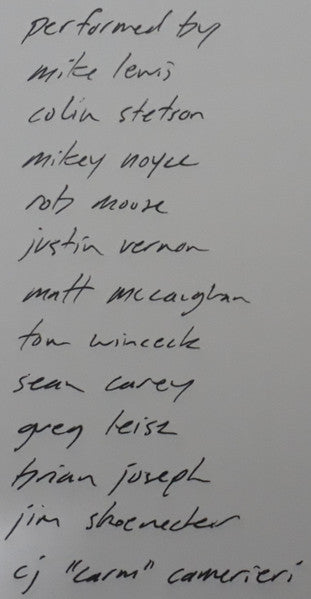 performed by
mike lewis
colin stetson
mikey noyce
rob moose
justin vernon
matt mccaughan
tom wincek
sean carey
greg leisz
brian joseph
jim shoenecker
cj "carm" camerieri